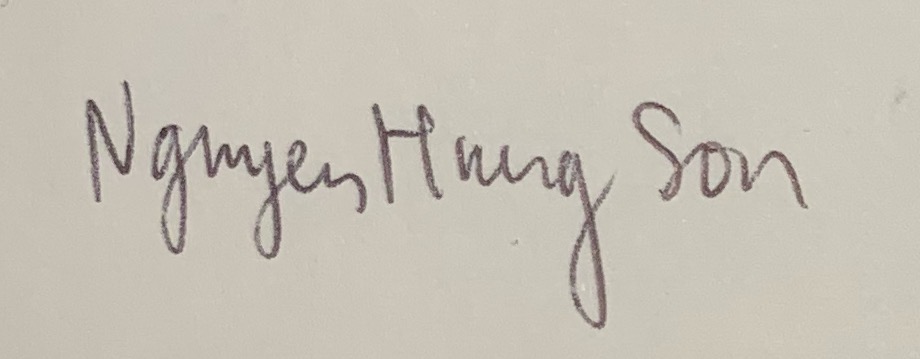 Nguyen Hung Son